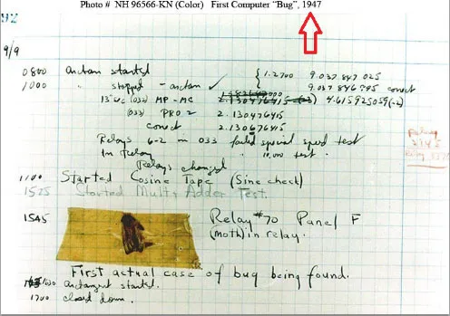 Photo # NH 96566-KN (Color) First Computer "Bug", 1947
92
9/9
0800 Antan started
1000 " stopped - antan ✓ { 1.2700 9.037 847 025
9.037 846 995 conect
13"uc (033) MP-MC 2.130476415 4.615925059(-2)
(033) PRO 2 2.130476415
conect 2.130676415
Relays 6-2 in 033 failed special speed test
in relay " 11.000 test.
Relays changed
Relay
2145
1100 Started Cosine Tape (Sine check)
1525 Started Mult+Adder Test.
1545 Relay #70 Panel F
(moth) in relay.
First actual case of bug being found.
antangent started.
1700 closed down.